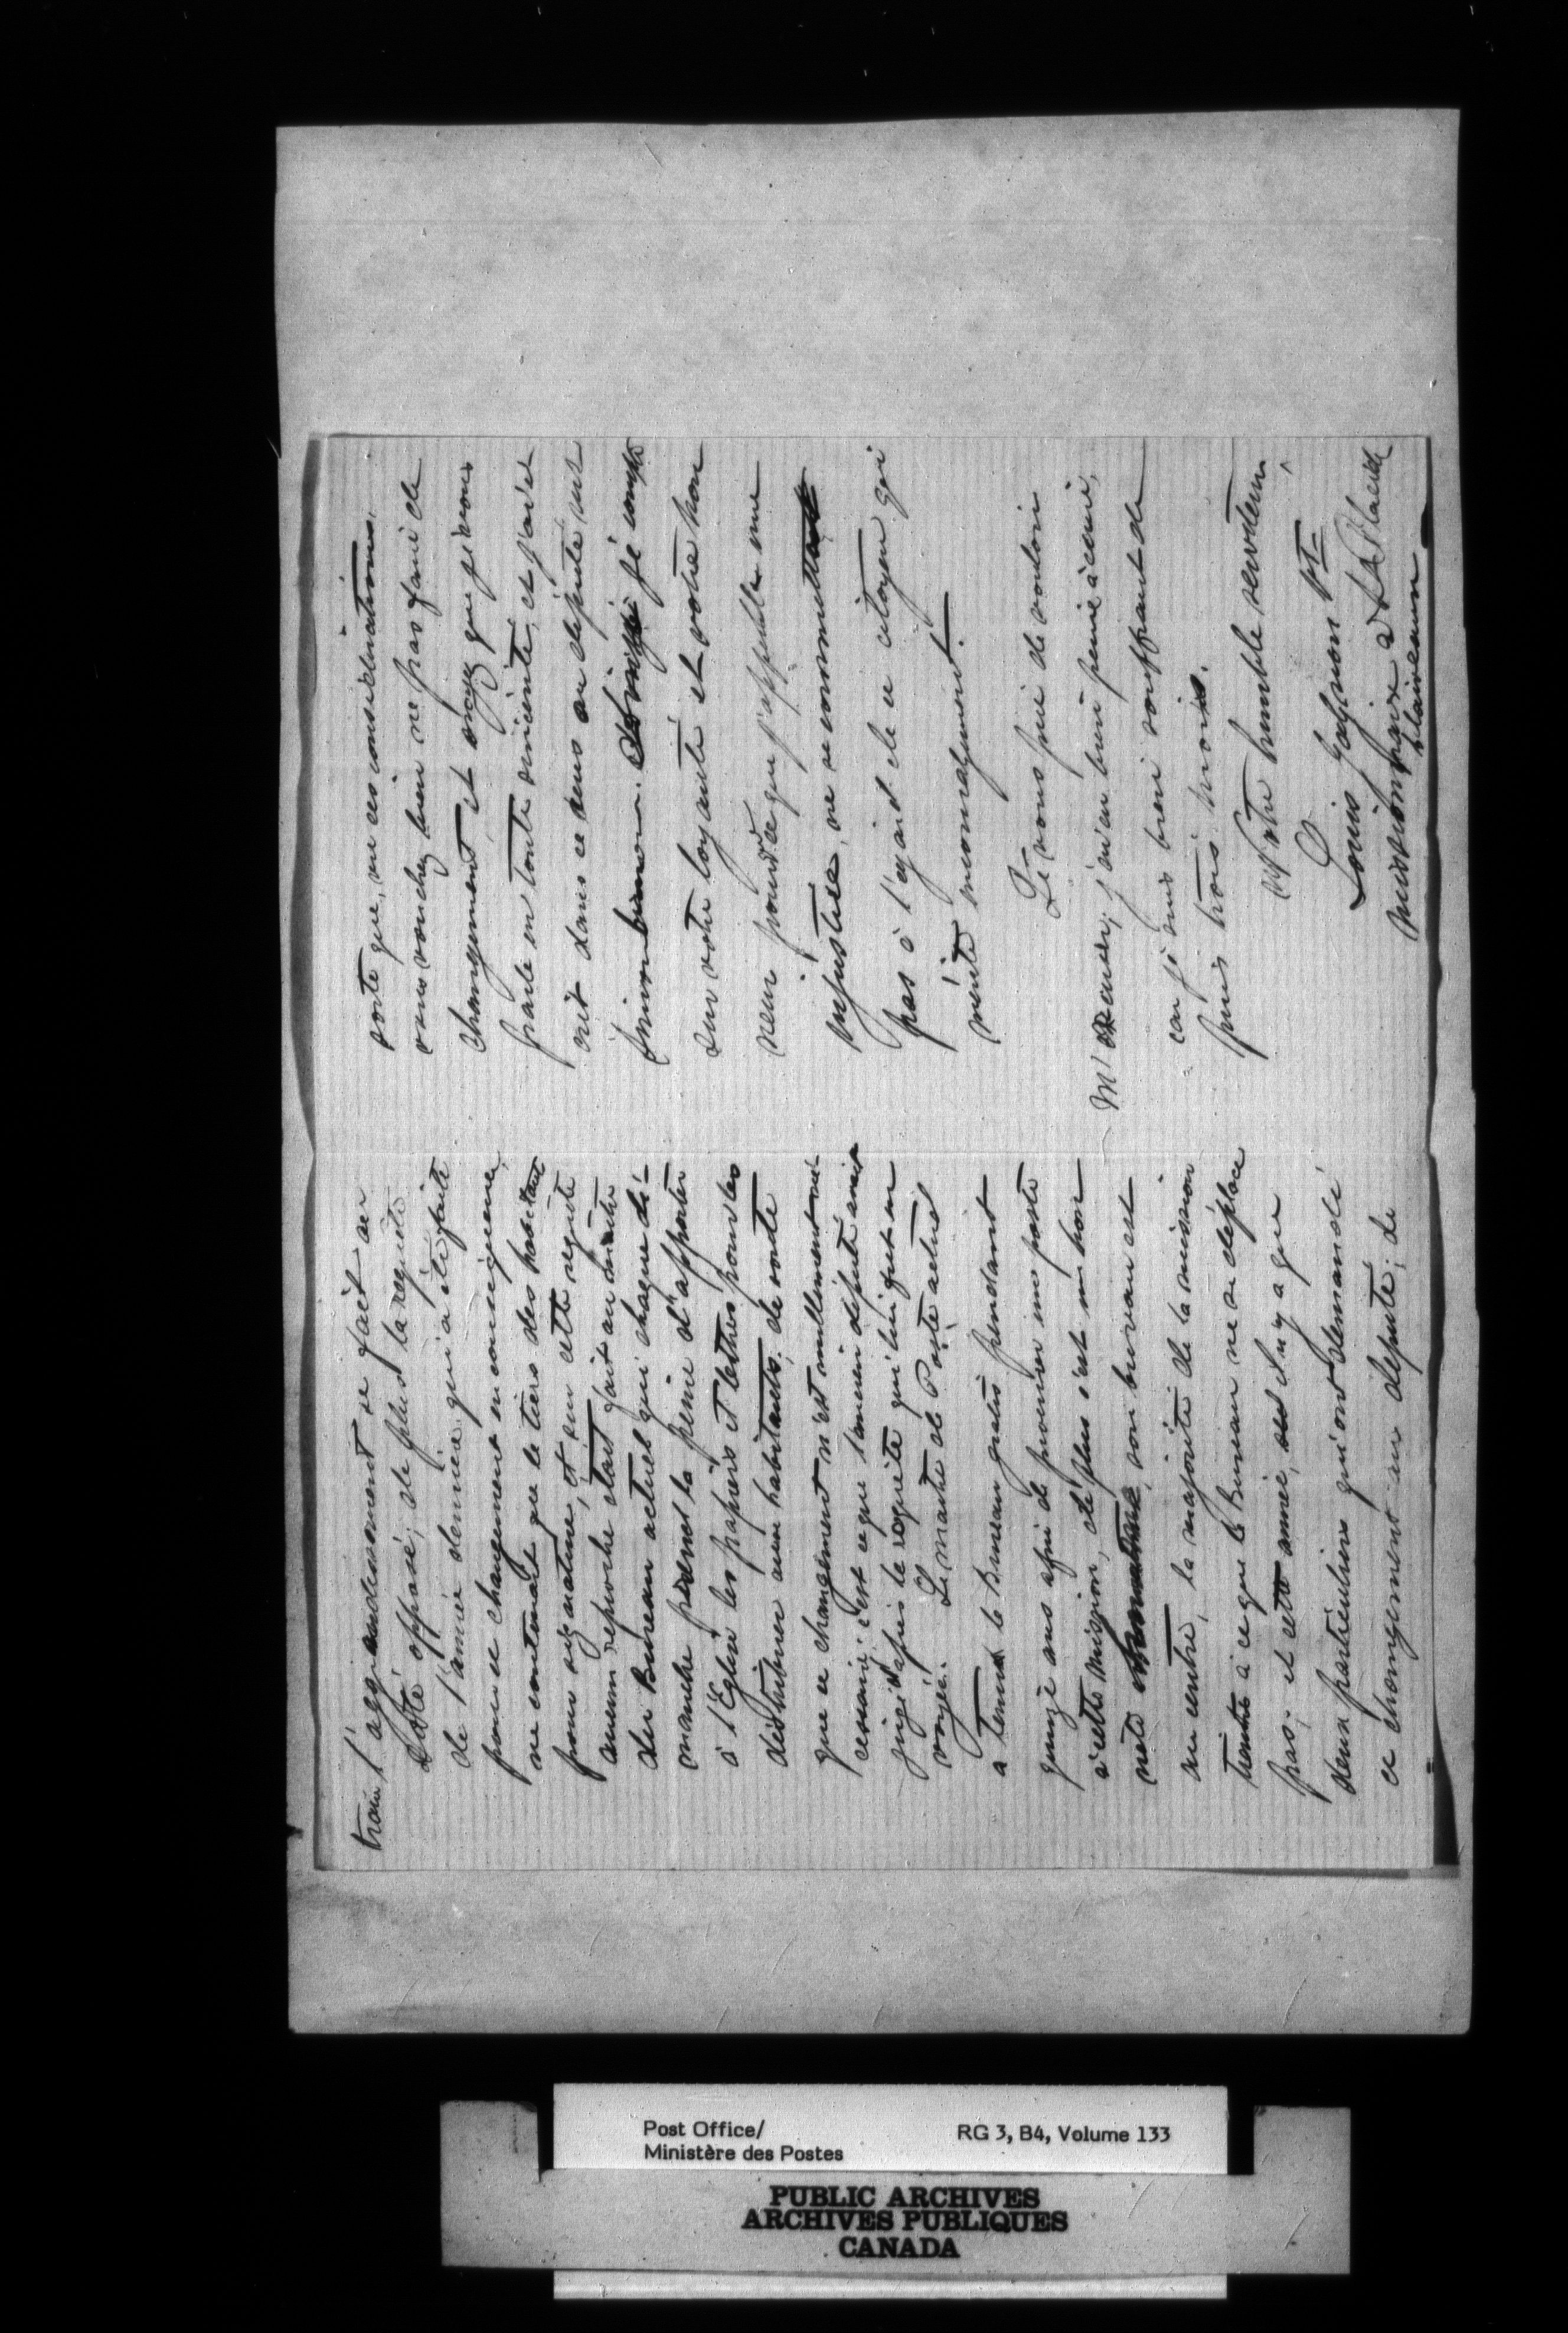 train, l'aggrandissement se fait au
coté opposé; de plus la requête
de l'année dernière qui a été faite
pour ce changement en conséquence,
ne contenait que le tiers des habitants
pour signature, et sur cette requête
aucun reproche était fait au maitre
du Bureau actuel qui chaque di-
manche prend la peine d'apporter
à l'Eglise les papiers et lettres pour les
distribuer aux habitants; de sorte
que ce changement n'est nullement né-
cessaire; c'est ce que l'ancien député avait
jugé d'après la requête qui lui fut en
voyée. Le maitre de Poste actuel
a tenu le Bureau gratis pendant
quinze ans afin de procurer une poste
à cette mission, de plus c'est un hom
nête son bureau est
au centre, la majorité de la mission
à ce que le Bureau ne se déplace
pas; et cette année, il n'y a que
deux particuliers qui ont demandé
ce changement au député; de
sorte que, vu ces considérations,
vous voudrez bien ne pas faire de
changement, et croyez que je vous
parle en toute sincérité, et j'avais
écrit dans ce sens au député
Simon je compte
sur votre loyauté et votre hon
neur pour ce que j'appelle une
injustice, ne se commette
pas à l'égard de ce citoyen qui
mérite ménagement.
Je vous prie de vouloir
m'excuser; j'ai bien peine à écrire,
car je suis bien souffrant de
puis trois mois.
Votre humble serviteur
Louis Gagnon Ptre
missionnaire à St Placide
Charlevoix
Post Office/ RG 3, B4, Volume 133
Ministère des Postes
PUBLIC ARCHIVES
ARCHIVES PUBLIQUES
CANADA